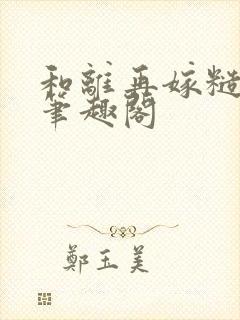 和離再嫁糙
筆趣閣
鄭玉美